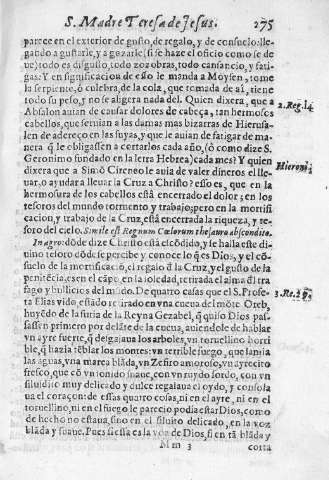 S. Madre Teresa de Jesus. 275
parece en el exterior de gusto, de regalo, y de consuelo: lle-
gando a gustarle, y a gozarle (si se haze el oficio como se de-
ue) todo es disgusto, todo zozobras, todo cansancio, y fati-
gas: Y en significacion de esso le manda a Moysen, tome
la serpiente, ò culebra, de la cola, que tomada de aì, tiene
todo su peso, y no se aligera nada del. Quien dixera, que a
Absalon auian de causar dolores de cabeça, tan hermosos
cabellos, que seruian a las damas mas bizarras de Hierusa-
len de adereço en las suyas, y que le auian de fatigar de mane-
ra q̃ le obligassen a cortarlos cada año, (ò como dize S.
Geronimo fundado en la letra Hebrea) cada mes? Y quien
dixera que a Simõ Cireneo le auia de valer dineros el lle-
uar, o ayudar a lleuar la Cruz a Christo? esso es, que en la
hermosura de los cabellos està encerrado el dolor; en los
tesoros del mundo tormento y trabajo; pero en la mortifi-
cacion, y trabajo de la Cruz, està encerrada la riqueza, y te-
soro del cielo. Simile est Regnum Cœlorum thesauro abscondito.
In agro: dõde dize Christo està escõdido, y se halla este di-
uino tesoro dõde se percibe y conoce lo q̃ es Dios, y el cõ-
suelo de la mortificaciõ, el regalo d̃ la Cruz, y el gusto de la
penitẽcia, es en el cãpo, en la soledad, retirada el alma d̃l tra-
fago y bullicios del mũdo. De quatro cosas que el S. Profe-
ta Elias vido, estãdo retirado en vna cueua del mõte Oreb,
huyẽdo de la furia de la Reyna Gezabel, q̃ quiso Dios pas-
sassen primero por delãte de la cueua, auiendole de hablar
vn ayre fuerte, q̃ desgajaua los arboles, vn toruellino horri-
ble, q̃ hazia tẽblar los montes: vn terrible fuego, que lamia
las aguas, vna marea blãda, vn Zefiro amoroso, vn ayrecito
fresco, que cõ vn sonido suaue, con vn ruydo sordo, con vn
siluidito muy delicado y dulce regalaua el oydo, y consola
ua el coraçon: de estas quatro cosas, ni en el ayre, ni en el
toruellino, ni en el fuego le parecio podia estar Dios, como
de hecho no estaua, sino en el siluito delicado, en la voz
blãda y suaue. Pues si essa es la voz de Dios, si en tã blãda y
Mm 3 corta
2. Reg. 14
Hieroni.
3. Re.